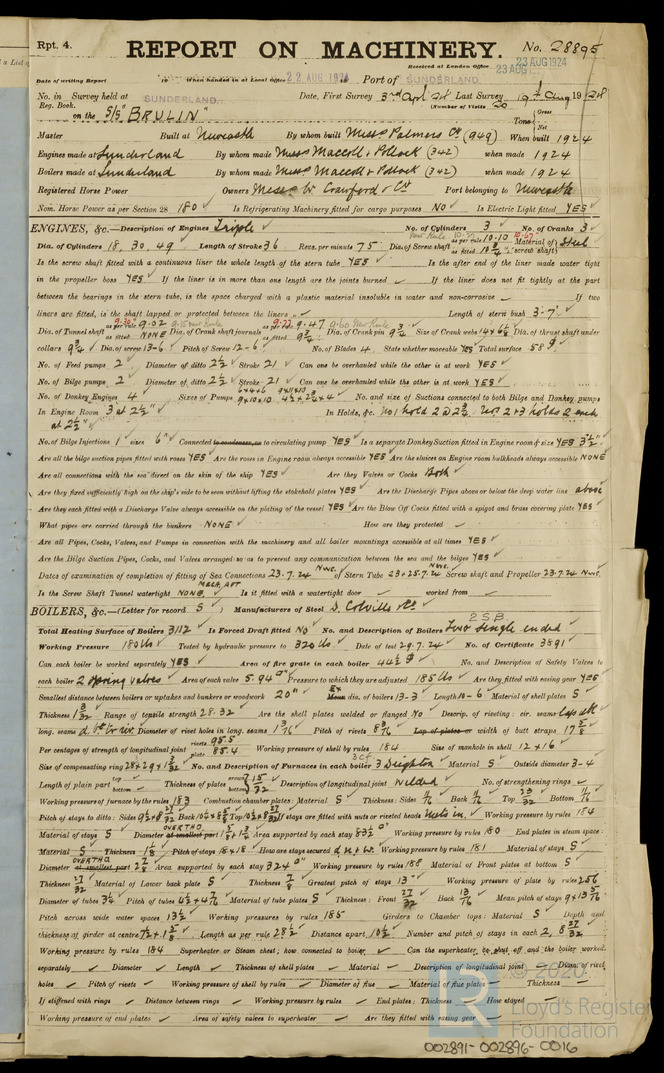 Rpt. 4.
REPORT ON MACHINERY. No. 28895
Received at London Office 23 AUG 1924
23 AUG 1924
Date of writing Report 19 When handed in at Local Office 22 AUG 1924 19 Port of SUNDERLAND.
No. in Survey held at SUNDERLAND. Date, First Survey 3rd Apl 24 Last Survey 19th Aug 1924
Reg. Book. (Number of Visits 20
on the S/S "BRULIN" Tons { Gross Net
Master Built at Newcastle By whom built Messrs Palmers Co (949) When built 1924
Engines made at Sunderland By whom made Messrs Maccoll & Pollock (342) when made 1924
Boilers made at Sunderland By whom made Messrs Maccoll & Pollock (342) when made 1924
Registered Horse Power Owners Messrs W. Crawford & Co Port belonging to Newcastle
Nom. Horse Power as per Section 28 180 Is Refrigerating Machinery fitted for cargo purposes NO Is Electric Light fitted YES
ENGINES, &c.—Description of Engines Triple No. of Cylinders 3 No. of Cranks 3
Dia. of Cylinders 18, 30, 49 Length of Stroke 36 Revs. per minute 75 Dia. of Screw shaft as per rule 10.10 as fitted 10 3/4" Material of screw shaft Steel
Is the screw shaft fitted with a continuous liner the whole length of the stern tube YES Is the after end of the liner made water tight
in the propeller boss YES If the liner is in more than one length are the joints burned — If the liner does not fit tightly at the part
between the bearings in the stern tube, is the space charged with a plastic material insoluble in water and non-corrosive — If two
liners are fitted, is the shaft lapped or protected between the liners — Length of stern bush 3-7"
Dia. of Tunnel shaft as per rule 9.02 as fitted NONE Dia. of Crank shaft journals as per rule 9.47 as fitted 9 3/4 Dia. of Crank pin 9 3/4 Size of Crank webs 14 x 6 1/2 Dia. of thrust shaft under
collars 9 3/4 Dia. of screw 13-6 Pitch of Screw 12-6 No. of Blades 4 State whether moveable YES Total surface 58
No. of Feed pumps 2 Diameter of ditto 2 1/2 Stroke 21 Can one be overhauled while the other is at work YES
No. of Bilge pumps 2 Diameter of ditto 2 1/2 Stroke 21 Can one be overhauled while the other is at work YES
No. of Donkey Engines 4 Sizes of Pumps No. and size of Suctions connected to both Bilge and Donkey pumps
In Engine Room 3 at 2 1/2" In Holds, &c. No 1 hold 2 @ 2 3/4 Nos 2 + 3 holds 2 each
at 2 1/2"
No. of Bilge Injections 1 sizes 6" Connected to condenser, or to circulating pump YES Is a separate Donkey Suction fitted in Engine room & size YES 3 1/2"
Are all the bilge suction pipes fitted with roses YES Are the roses in Engine room always accessible YES Are the sluices on Engine room bulkheads always accessible NONE
Are all connections with the sea direct on the skin of the ship YES Are they Valves or Cocks Both
Are they fixed sufficiently high on the ship's side to be seen without lifting the stokehold plates YES Are the Discharge Pipes above or below the deep water line above
Are they each fitted with a Discharge Valve always accessible on the plating of the vessel YES Are the Blow Off Cocks fitted with a spigot and brass covering plate YES
What pipes are carried through the bunkers NONE How are they protected —
Are all Pipes, Cocks, Valves, and Pumps in connection with the machinery and all boiler mountings accessible at all times YES
Are the Bilge Suction Pipes, Cocks, and Valves arranged so as to prevent any communication between the sea and the bilges YES
Dates of examination of completion of fitting of Sea Connections 23.7.24 Nwc. of Stern Tube 23 + 25.7.24 Nwc. Screw shaft and Propeller 23.7.24 Nwc.
Is the Screw Shaft Tunnel watertight NONE, MACH. AFT Is it fitted with a watertight door — worked from —
BOILERS, &c.—(Letter for record S) Manufacturers of Steel D. Colville & Co.
Total Heating Surface of Boilers 3112 Is Forced Draft fitted NO No. and Description of Boilers Two Single ended 2 S.B
Working Pressure 180 lbs Tested by hydraulic pressure to 320 lbs Date of test 29.7.24 No. of Certificate 3891
Can each boiler be worked separately YES Area of fire grate in each boiler 44 1/2 No. and Description of Safety Valves to
each boiler 2 Spring valves Area of each valve 5.94 Pressure to which they are adjusted 185 lbs Are they fitted with easing gear YES
Smallest distance between boilers or uptakes and bunkers or woodwork 20" Ex Mean dia. of boilers 13-3 Length 10-6 Material of shell plates S
Thickness 1 3/32 Range of tensile strength 28.32 Are the shell plates welded or flanged NO Descrip. of riveting: cir. seams Lap
long. seams Diameter of rivet holes in long. seams 1 3/16 Pitch of rivets 8 3/16 Lap of plates or width of butt straps 17 5/8
Per centages of strength of longitudinal joint rivets 95.5 plate 85.4 Working pressure of shell by rules 184 Size of manhole in shell 12 x 16
Size of compensating ring No. and Description of Furnaces in each boiler 3 Deighton Material S Outside diameter 3-4
Length of plain part top bottom Thickness of plates crown bottom 15/32 Description of longitudinal joint welded No. of strengthening rings —
Working pressure of furnace by the rules 183 Combustion chamber plates: Material S Thickness: Sides 11/16 Back 11/16 Top 23/32 Bottom 11/16
Pitch of stays to ditto: Sides Back Top If stays are fitted with nuts or riveted heads nuts in Working pressure by rules 184
Material of stays S Diameter at smallest part OVER THD Area supported by each stay 83 1/2 Working pressure by rules 180 End plates in steam space:
Material S Thickness 1 1/8 Pitch of stays 18 x 18 How are stays secured d.n + w. Working pressure by rules 181 Material of stays S
Diameter at smallest part OVER THD 2 7/8 Area supported by each stay 324 Working pressure by rules 188 Material of Front plates at bottom S
Thickness 27/32 Material of Lower back plate S Thickness 7/8 Greatest pitch of stays 13" Working pressure of plate by rules 256
Diameter of tubes 3 1/4 Pitch of tubes Material of tube plates S Thickness: Front 27/32 Back 13/16 Mean pitch of stays
Pitch across wide water spaces 13 1/2 Working pressures by rules 185 Girders to Chamber tops: Material S Depth and
thickness of girder at centre Length as per rule 28 1/2 Distance apart 10 1/2 Number and pitch of stays in each 2, 8 27/32
Working pressure by rules 184 Superheater or Steam chest; how connected to boiler — Can the superheater be shut off and the boiler worked
separately — Diameter — Length — Thickness of shell plates — Material — Description of longitudinal joint — Diam. of rivet
holes — Pitch of rivets — Working pressure of shell by rules — Diameter of flue — Material of flue plates — Thickness —
If stiffened with rings — Distance between rings — Working pressure by rules — End plates: Thickness — How stayed —
Working pressure of end plates — Area of safety valves to superheater — Are they fitted with easing gear —
© 2020
Lloyd's Register
Foundation
002891-002896-0016